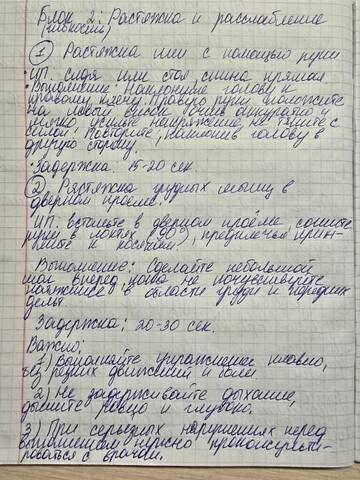 Блок 2: Растяжка и расслабление
(гибкость)
① Растяжка шеи с помощью руки
ИП: сидя или стоя, спина прямая.
• Выполнение: Наклоните голову к
правому плечу. Правую руку положите
на левый висок. Очень аккуратно и
мягко усильте напряжение, не тяните с
силой. Повторите, наклонив голову в
другую сторону.
• Задержка: 15-20 сек
② Растяжка грудных мышц в
дверном проёме.
ИП: встаньте в дверном проёме, согните
руки в локтях 90°, предплечья приж-
мите к косякам
Выполнение: Сделайте небольшой
шаг вперед, пока не почувствуете
натяжение в области груди и передних
дельт
Задержка: 20-30 сек.
Важно:
1) Выполняйте упражнение плавно,
без резких движений и боли
2) Не задерживайте дыхание,
дышите ровно и глубоко.
3) При серьезных нарушениях перед
выполнением нужно проконсульти-
роваться с врачом.